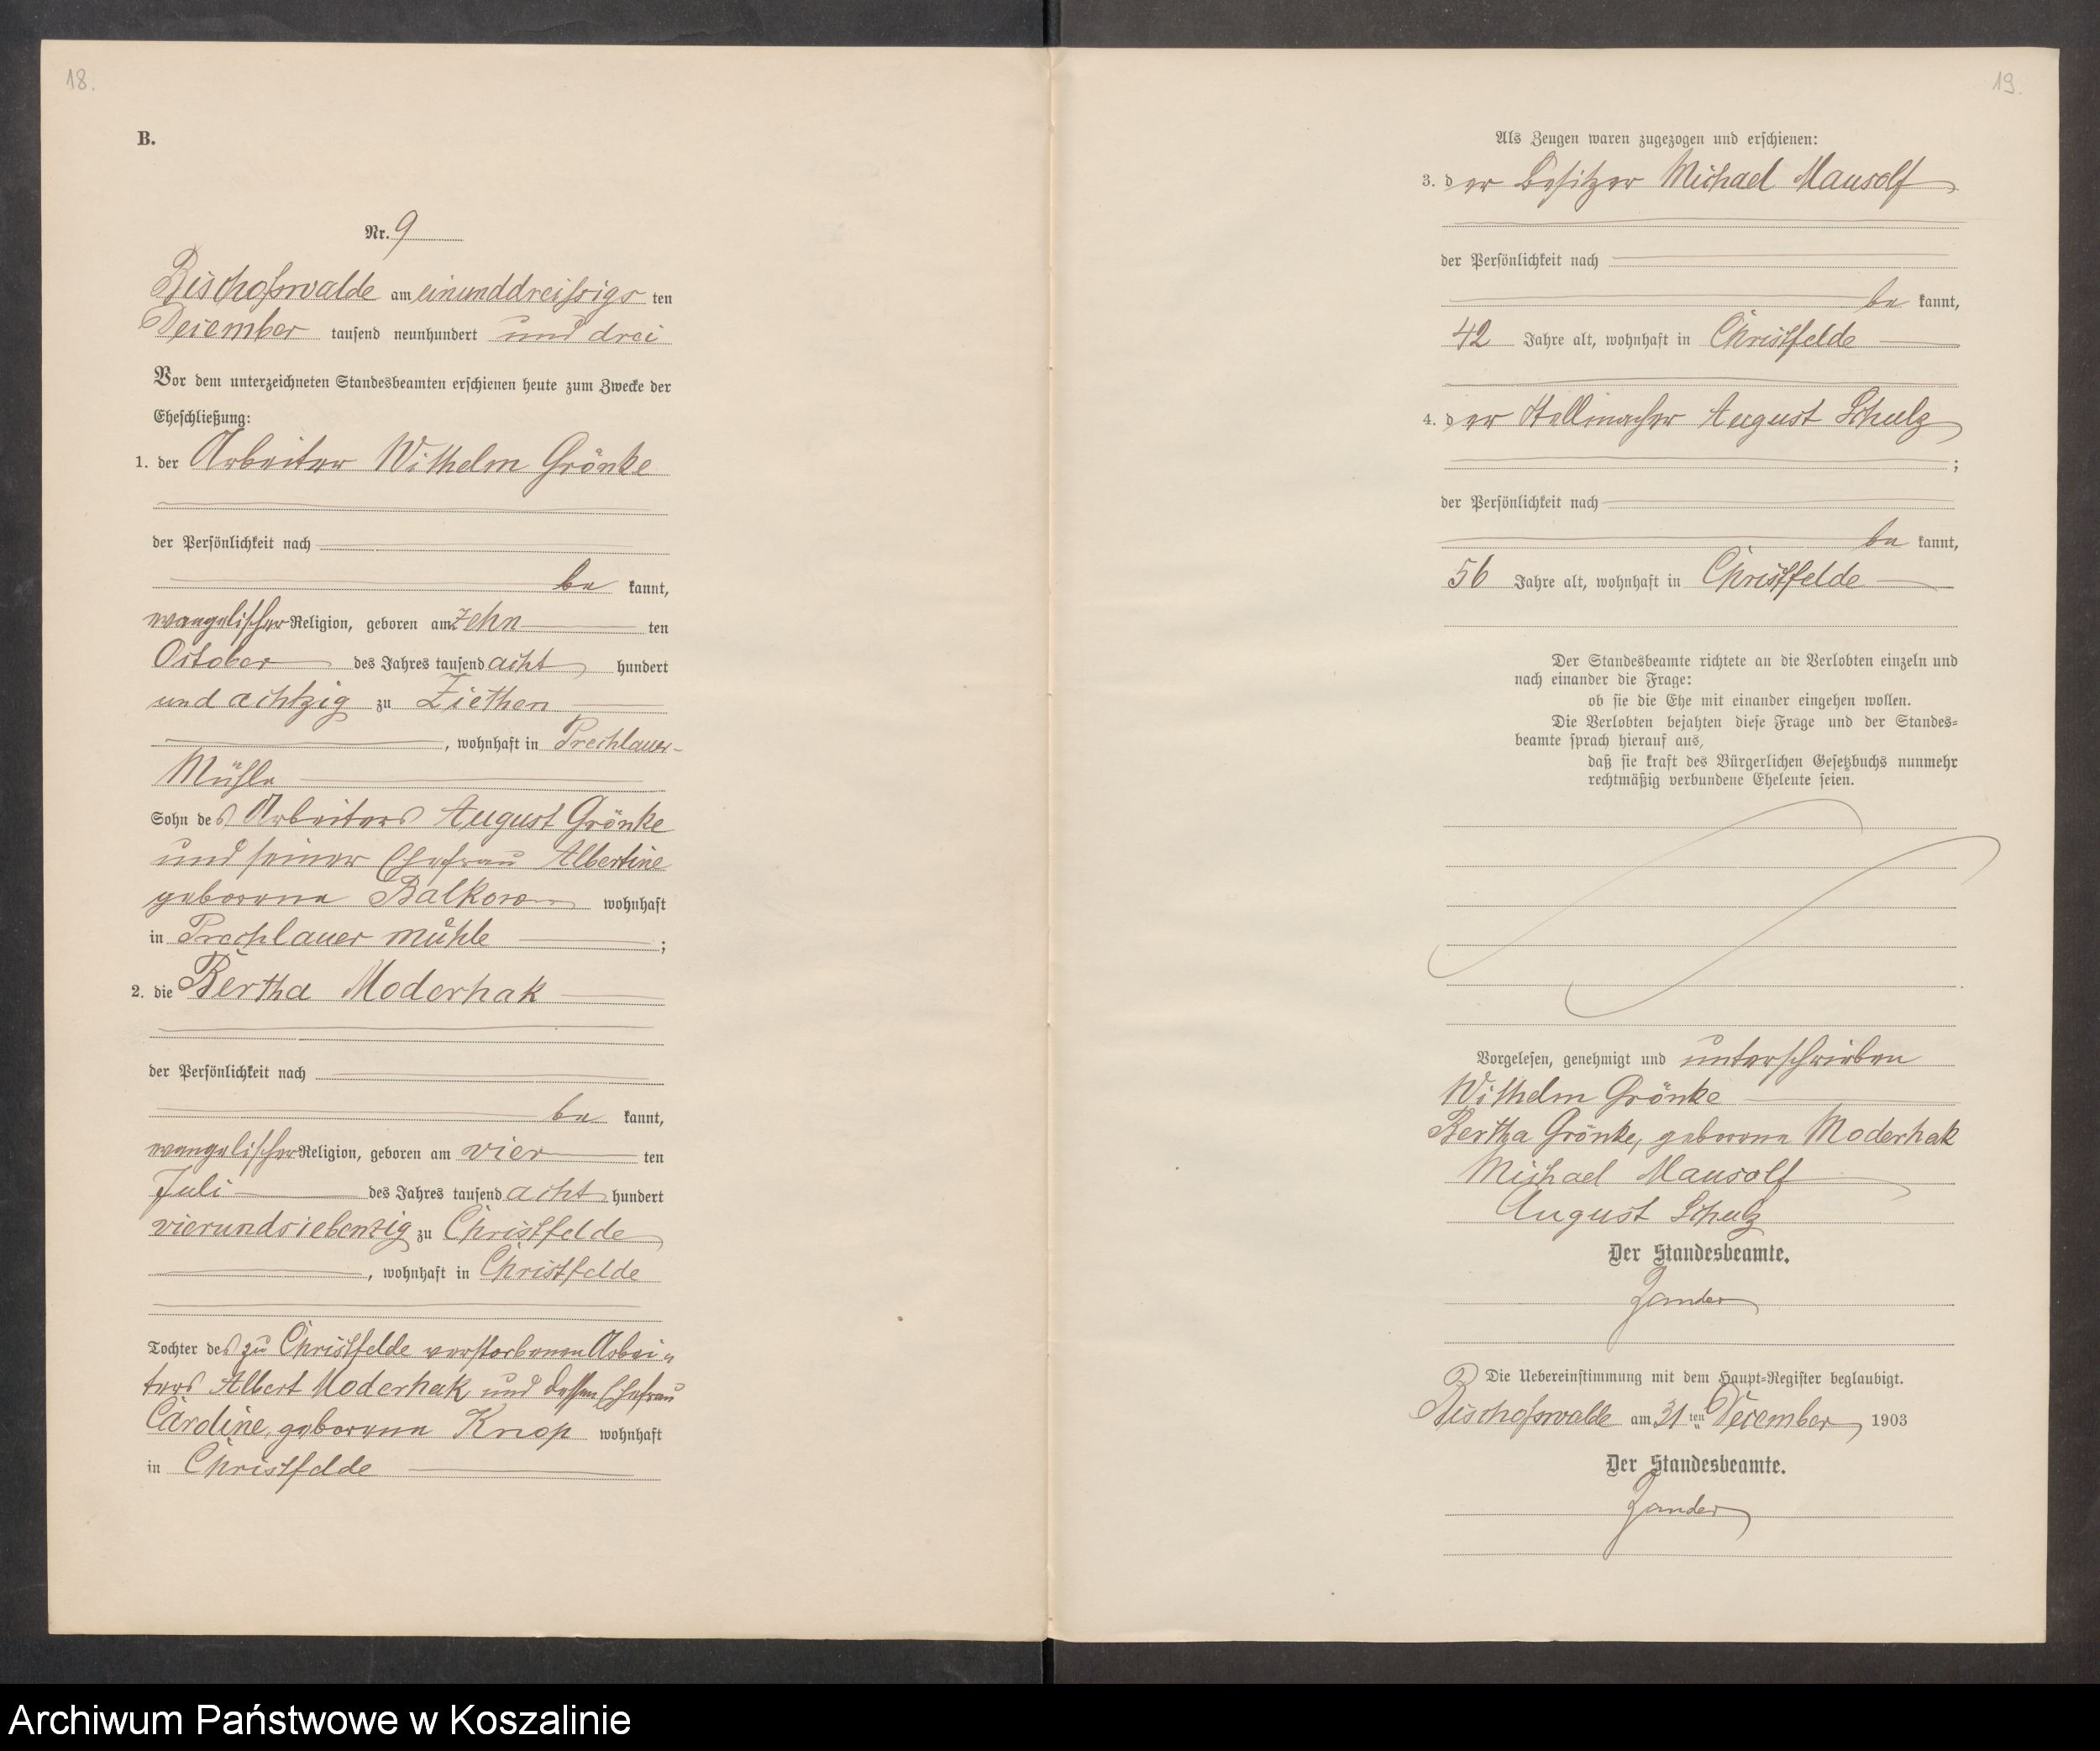 18.
B.
Nr. 9
Bischofswalde am einunddreißigs ten
December tausend neunhundert und drei
Vor dem unterzeichneten Standesbeamten erschienen heute zum Zwecke der
Eheschließung:
1. der Arbeiter Wilhelm Grönke
der Persönlichkeit nach
be kannt,
evangelischer Religion, geboren am zehn ten
October des Jahres tausend acht hundert
und achtzig zu Ziethen
, wohnhaft in Prechlauer-
Mühle
Sohn des Arbeiters August Grönke
und seiner Ehefrau Albertine
geborene wohnhaft
in Prechlauer Mühle ;
2. die Bertha Moderhak
der Persönlichkeit nach
be kannt,
evangelischer Religion, geboren am vier ten
Juli des Jahres tausend acht hundert
vierundsiebenzig zu Christfelde
, wohnhaft in Christfelde
Tochter des zu Christfelde verstorbenen Arbei-
ters Albert Moderhak und dessen Ehefrau
Caroline, geborene Knop wohnhaft
in Christfelde
19.
Als Zeugen waren zugezogen und erschienen:
3. der Besitzer Michael Mausolf
der Persönlichkeit nach
be kannt,
42 Jahre alt, wohnhaft in Christfelde
4. der Stellmacher August Schulz
;
der Persönlichkeit nach
be kannt,
56 Jahre alt, wohnhaft in Christfelde
Der Standesbeamte richtete an die Verlobten einzeln und
nach einander die Frage:
ob sie die Ehe mit einander eingehen wollen.
Die Verlobten bejahten diese Frage und der Standes-
beamte sprach hierauf aus,
daß sie kraft des Bürgerlichen Gesetzbuchs nunmehr
rechtmäßig verbundene Eheleute seien.
Vorgelesen, genehmigt und unterschrieben
Wilhelm Grönke
Bertha Grönke, geborene Moderhak
Michael Mausolf
August Schulz
Der Standesbeamte.
Zander
Die Uebereinstimmung mit dem Haupt-Register beglaubigt.
Bischofswalde am 31 ten December 1903
Der Standesbeamte.
Zander
Archiwum Państwowe w Koszalinie